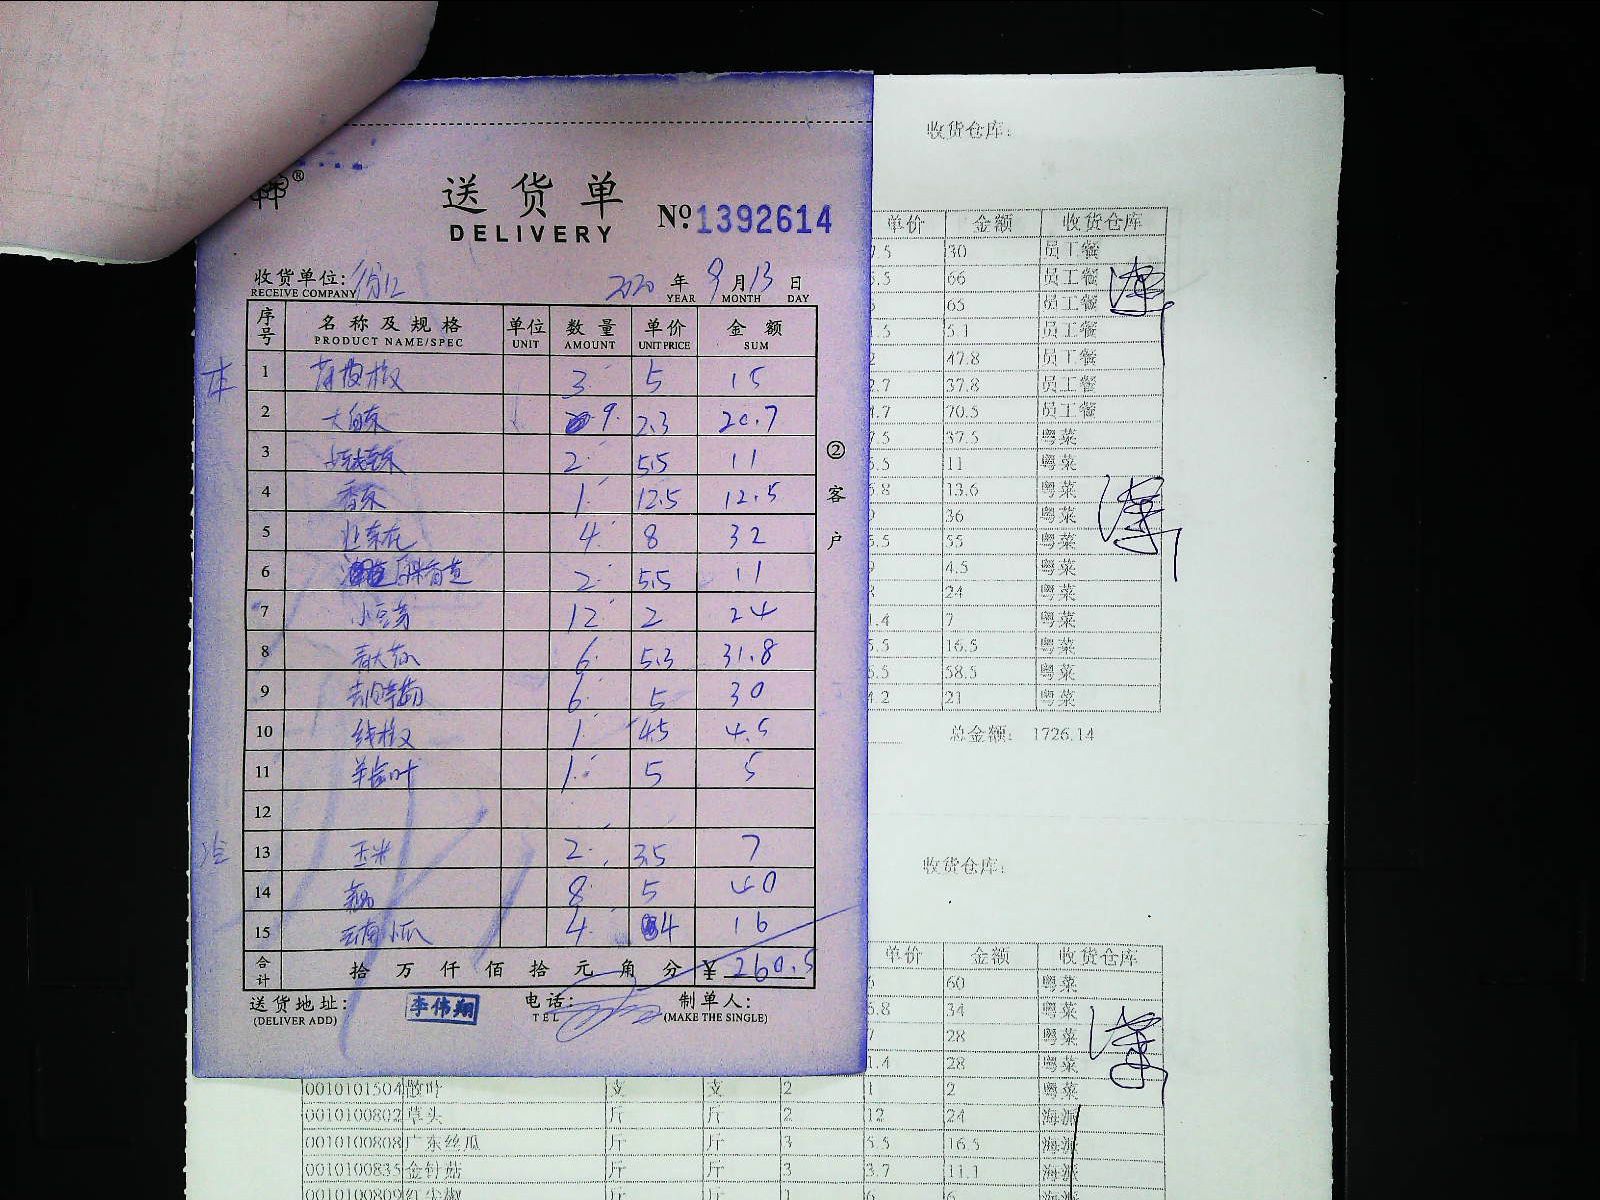 送货单
DELIVERY
№:1392614
收货单位:
RECEIVE COMPANY
2020 年 9 月 13 日
YEAR MONTH DAY
序号 名称及规格 单位 数量 单价 金额
PRODUCT NAME/SPEC UNIT AMOUNT UNIT PRICE SUM
本
1 3 5 15
2 大白菜 9 2.3 20.7
3 2 5.5 11
4 香菜 1 12.5 12.5
5 韭菜花 4 8 32
6 2 5.5 11
7 小豆芽 12 2 24
8 6 5.3 31.8
9 6 5 30
10 线椒 1 4.5 4.5
11 1 5 5
12
13 玉米 2 3.5 7
14 8 5 40
15 云南小瓜 4 4 16
合计 拾 万 仟 佰 拾 元 角 分 ¥ 260.5
送货地址:
(DELIVER ADD)
李伟翔
电话:
TEL
制单人:
(MAKE THE SINGLE)
②客户
收货仓库:
单价 金额 收货仓库
7.5 30 员工餐
5.5 66 员工餐
65 员工餐
5.1 员工餐
2 47.8 员工餐
2.7 37.8 员工餐
4.7 70.5 员工餐
7.5 37.5 粤菜
5.5 11 粤菜
6.8 13.6 粤菜
9 36 粤菜
5.5 55 粤菜
9 4.5 粤菜
24 粤菜
1.4 7 粤菜
5.5 16.5 粤菜
6.5 58.5 粤菜
4.2 21 粤菜
总金额: 1726.14
收货仓库:
单价 金额 收货仓库
6 60 粤菜
6.8 34 粤菜
7 28 粤菜
1.4 28 粤菜
0010101504 散叶 支 支 2 1 2 粤菜
0010100802 草头 斤 斤 2 12 24 海派
0010100808 广东丝瓜 斤 斤 3 5.5 16.5 海派
0010100835 金针菇 斤 斤 3 3.7 11.1 海派
0010100809 红尖椒 斤 斤 1 6 6 海派